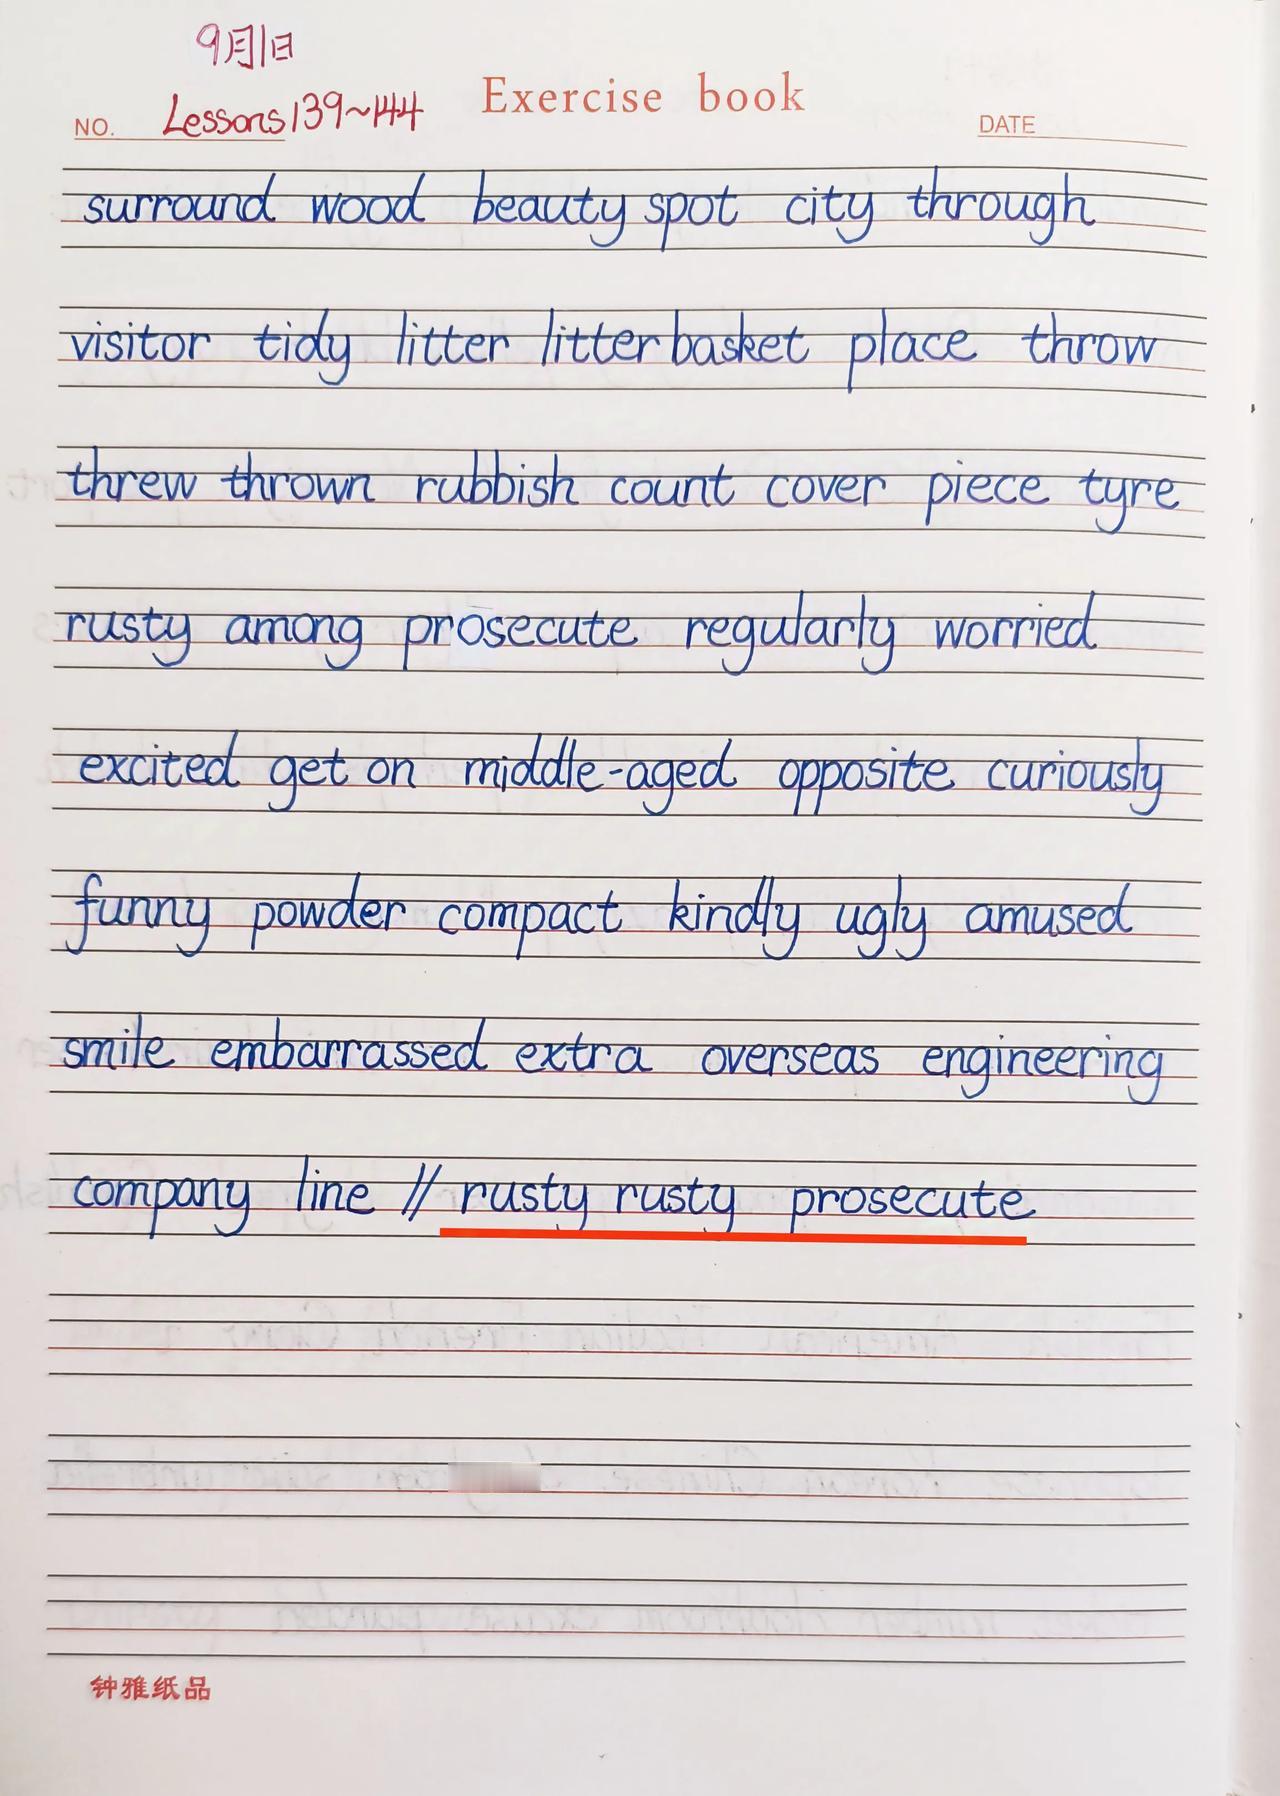 9月1日
Lessons139~144
Exercise book
NO.
DATE
surround wood beauty spot city through
visitor tidy litter litter basket place throw
threw thrown rubbish count cover piece tyre
rusty among prosecute regularly worried
excited get on middle-aged opposite curiously
funny powder compact kindly ugly amused
smile embarrassed extra overseas engineering
company line // rusty rusty prosecute
钟雅纸品